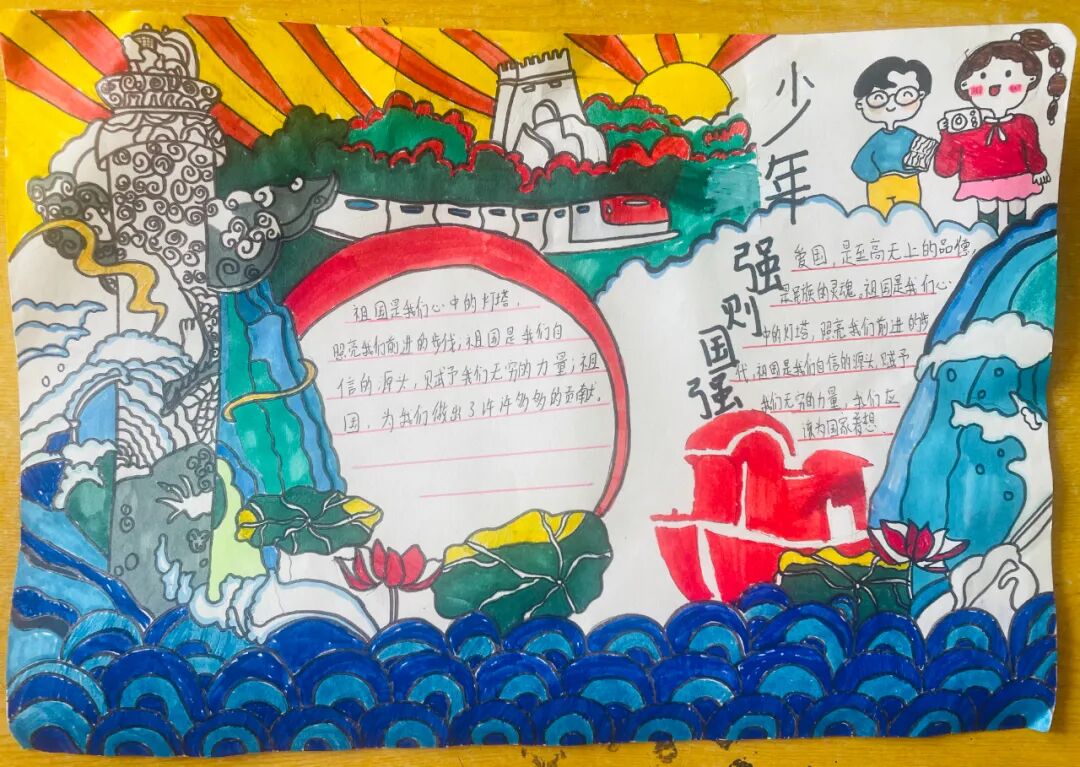 少年
强则
国强
祖国是我们心中的灯塔，
照亮我们前进的步伐，祖国是我们自
信的源头，赋予我们无穷的力量；祖
国，为我们做出了许许多多的贡献。
爱国，是至高无上的品德，
是民族的灵魂。祖国是我们心
中的灯塔，照亮我们前进的步
伐，祖国是我们自信的源头，赋予
我们无穷的力量，我们应
该为国家着想。